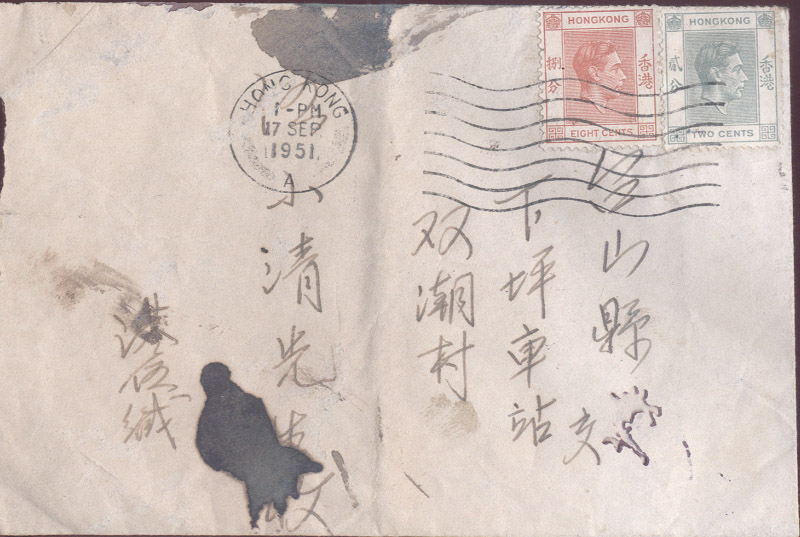 HONGKONG
捌分
香港
EIGHT CENTS
HONGKONG
貳分
香港
TWO CENTS
HONG KONG
1-PM
17 SEP
1951
A
台山縣
下坪車站
交
双潮村
小清先
港
緘